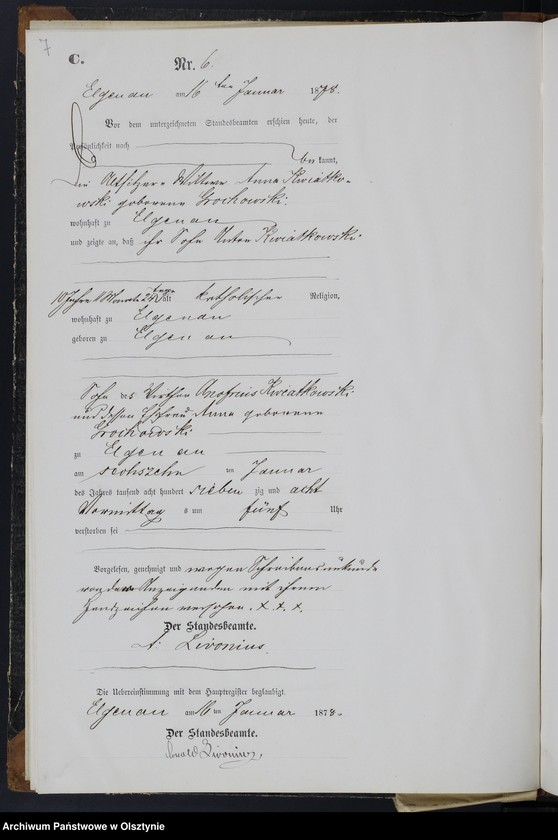 7
C.
Nr. 6.
Elgenau am 16ten Januar 1878.
Vor dem unterzeichneten Standesbeamten erschien heute, der
Persönlichkeit nach
bekannt,
die Altsitzer Wittwe Anna Kwiatko-
wski geborene Grochowski
wohnhaft zu Elgenau
und zeigte an, daß ihr Sohn Anton Kwiatkowski
10 Jahre 8 Monate tage alt katholischer Religion,
wohnhaft zu Elgenau
geboren zu Elgenau
Sohn des Wirths Onofrius Kwiatkowski
und dessen Ehefrau Anna geborene
Grochowski
zu Elgenau
am sechszehn ten Januar
des Jahres tausend acht hundert sieben zig und acht
Vormittag s um fünf Uhr
verstorben sei
Vorgelesen, genehmigt und wegen Schreibensunkunde
von dem Anzeigenden mit ihrem
Handzeichen versehen. + + +.
Der Standesbeamte.
A. Livonius.
Die Uebereinstimmung mit dem Hauptregister beglaubigt.
Elgenau am 16ten Januar 1878.
Der Standesbeamte.
Livonius,
Archiwum Państwowe w Olsztynie